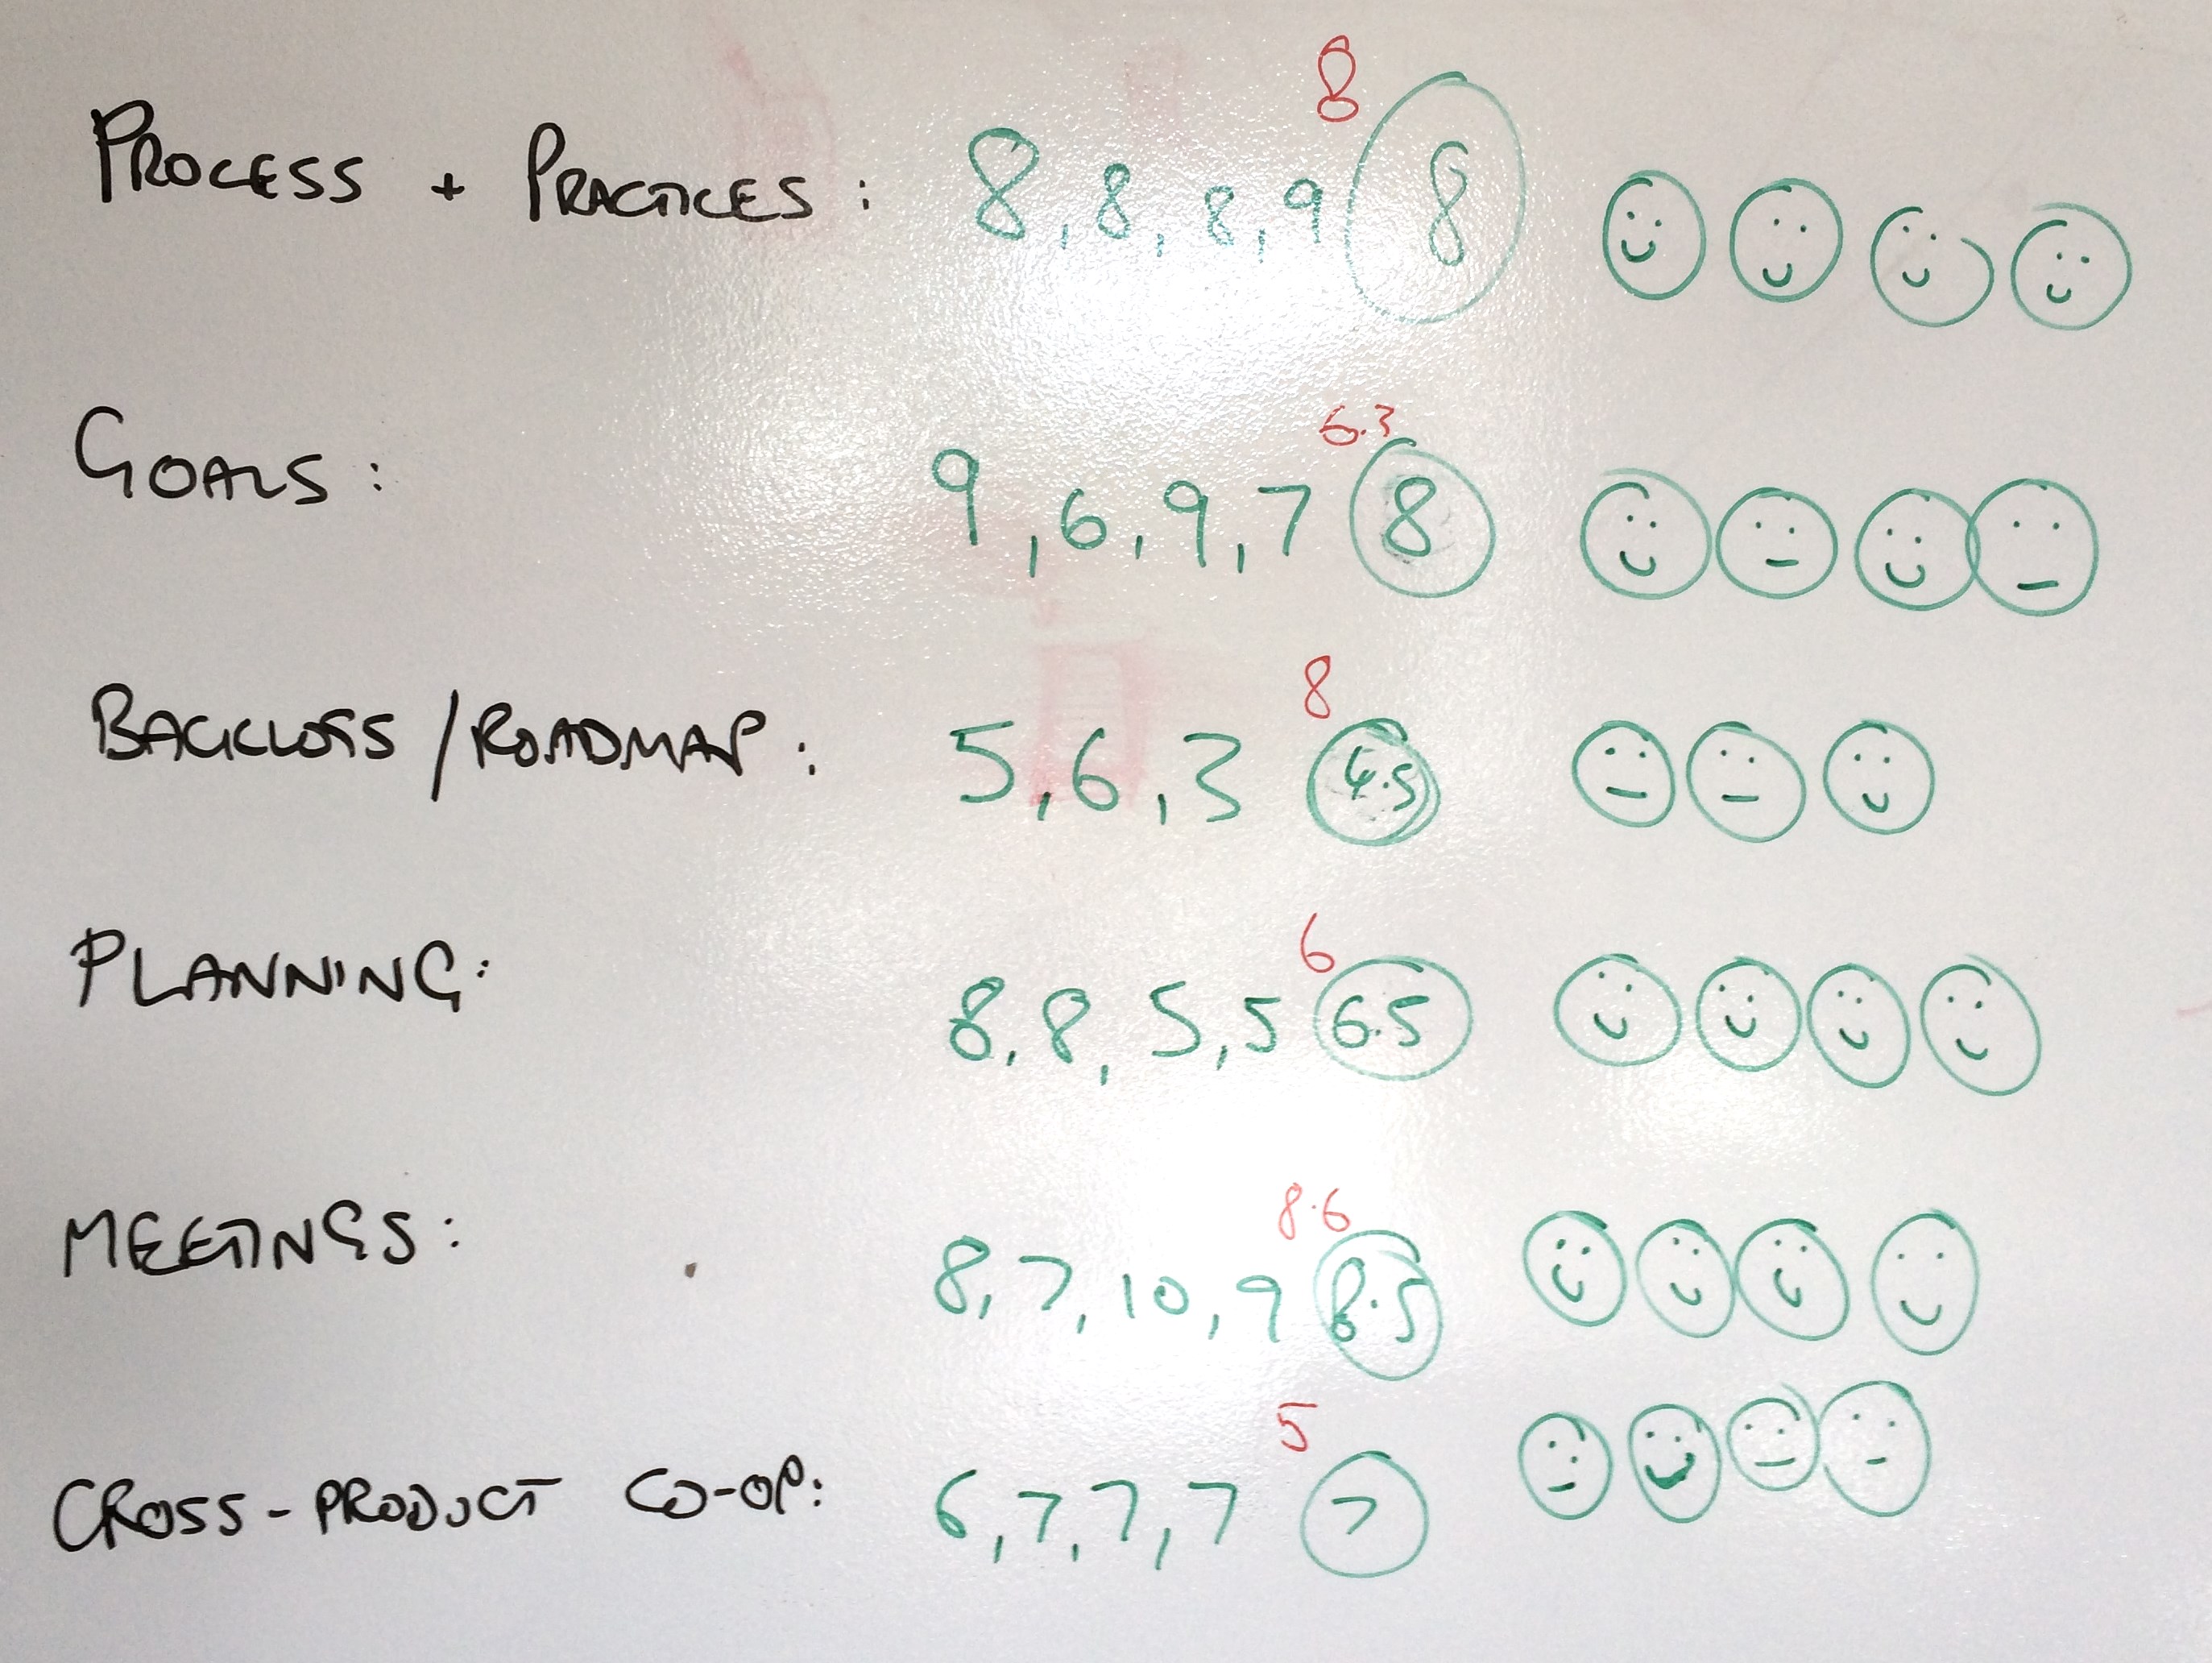 8
PROCESS + PRACTICES: 8, 8, 8, 9 8
6.3
GOALS: 9, 6, 9, 7 8
8
BACKLOGS / ROADMAP: 5, 6, 3 4.5
6
PLANNING: 8, 8, 5, 5 6.5
8.6
MEETINGS: 8, 7, 10, 9 8.5
5
CROSS-PRODUCT CO-OP: 6, 7, 7, 7 7